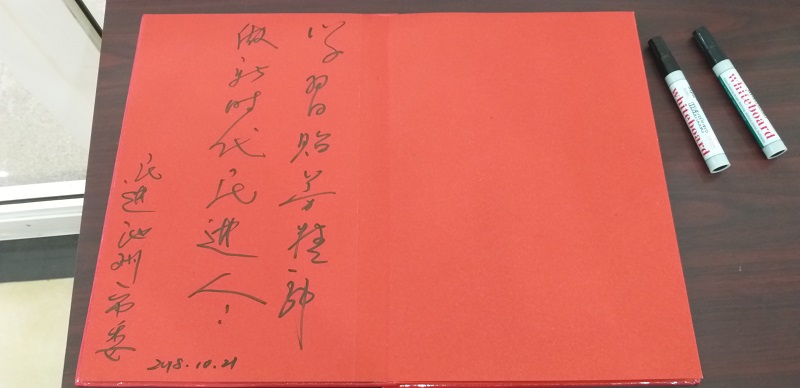 学習贻芳精神
做新时代民进人!
民进池州市委
2018.10.21
whiteboard
whiteboard